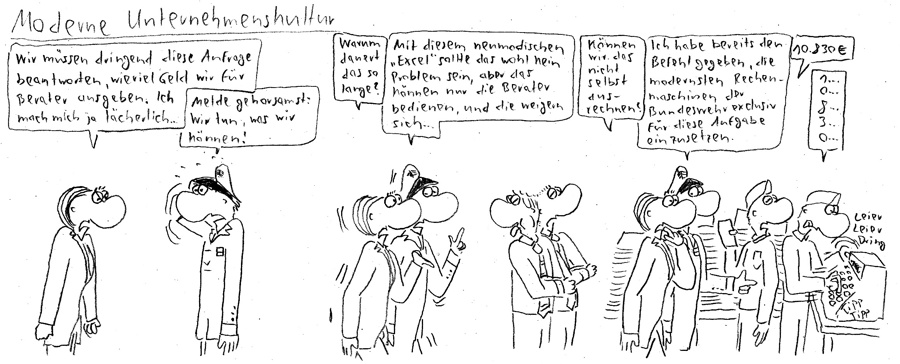 Moderne Unternehmenskultur
Wir müssen dringend diese Anfrage
beantworten, wieviel Geld wir für
Berater ausgeben. Ich
mach mich ja lächerlich...
Melde gehorsamst:
Wir tun, was wir
können!
Warum
dauert
das so
lange?
Mit diesem neumodischen
„Excel" sollte das wohl kein
Problem sein, aber das
können nur die Berater
bedienen, und die weigern
sich...
Können
wir das
nicht
selbst
aus-
rechnen?
Ich habe bereits den
Befehl gegeben, die
modernsten Rechen-
maschinen der
Bundeswehr exclusiv
für diese Aufgabe
einzusetzen.
10.830€
1...
0...
8...
3...
0...
Leier
Leier
Dring
Tipp
Tipp